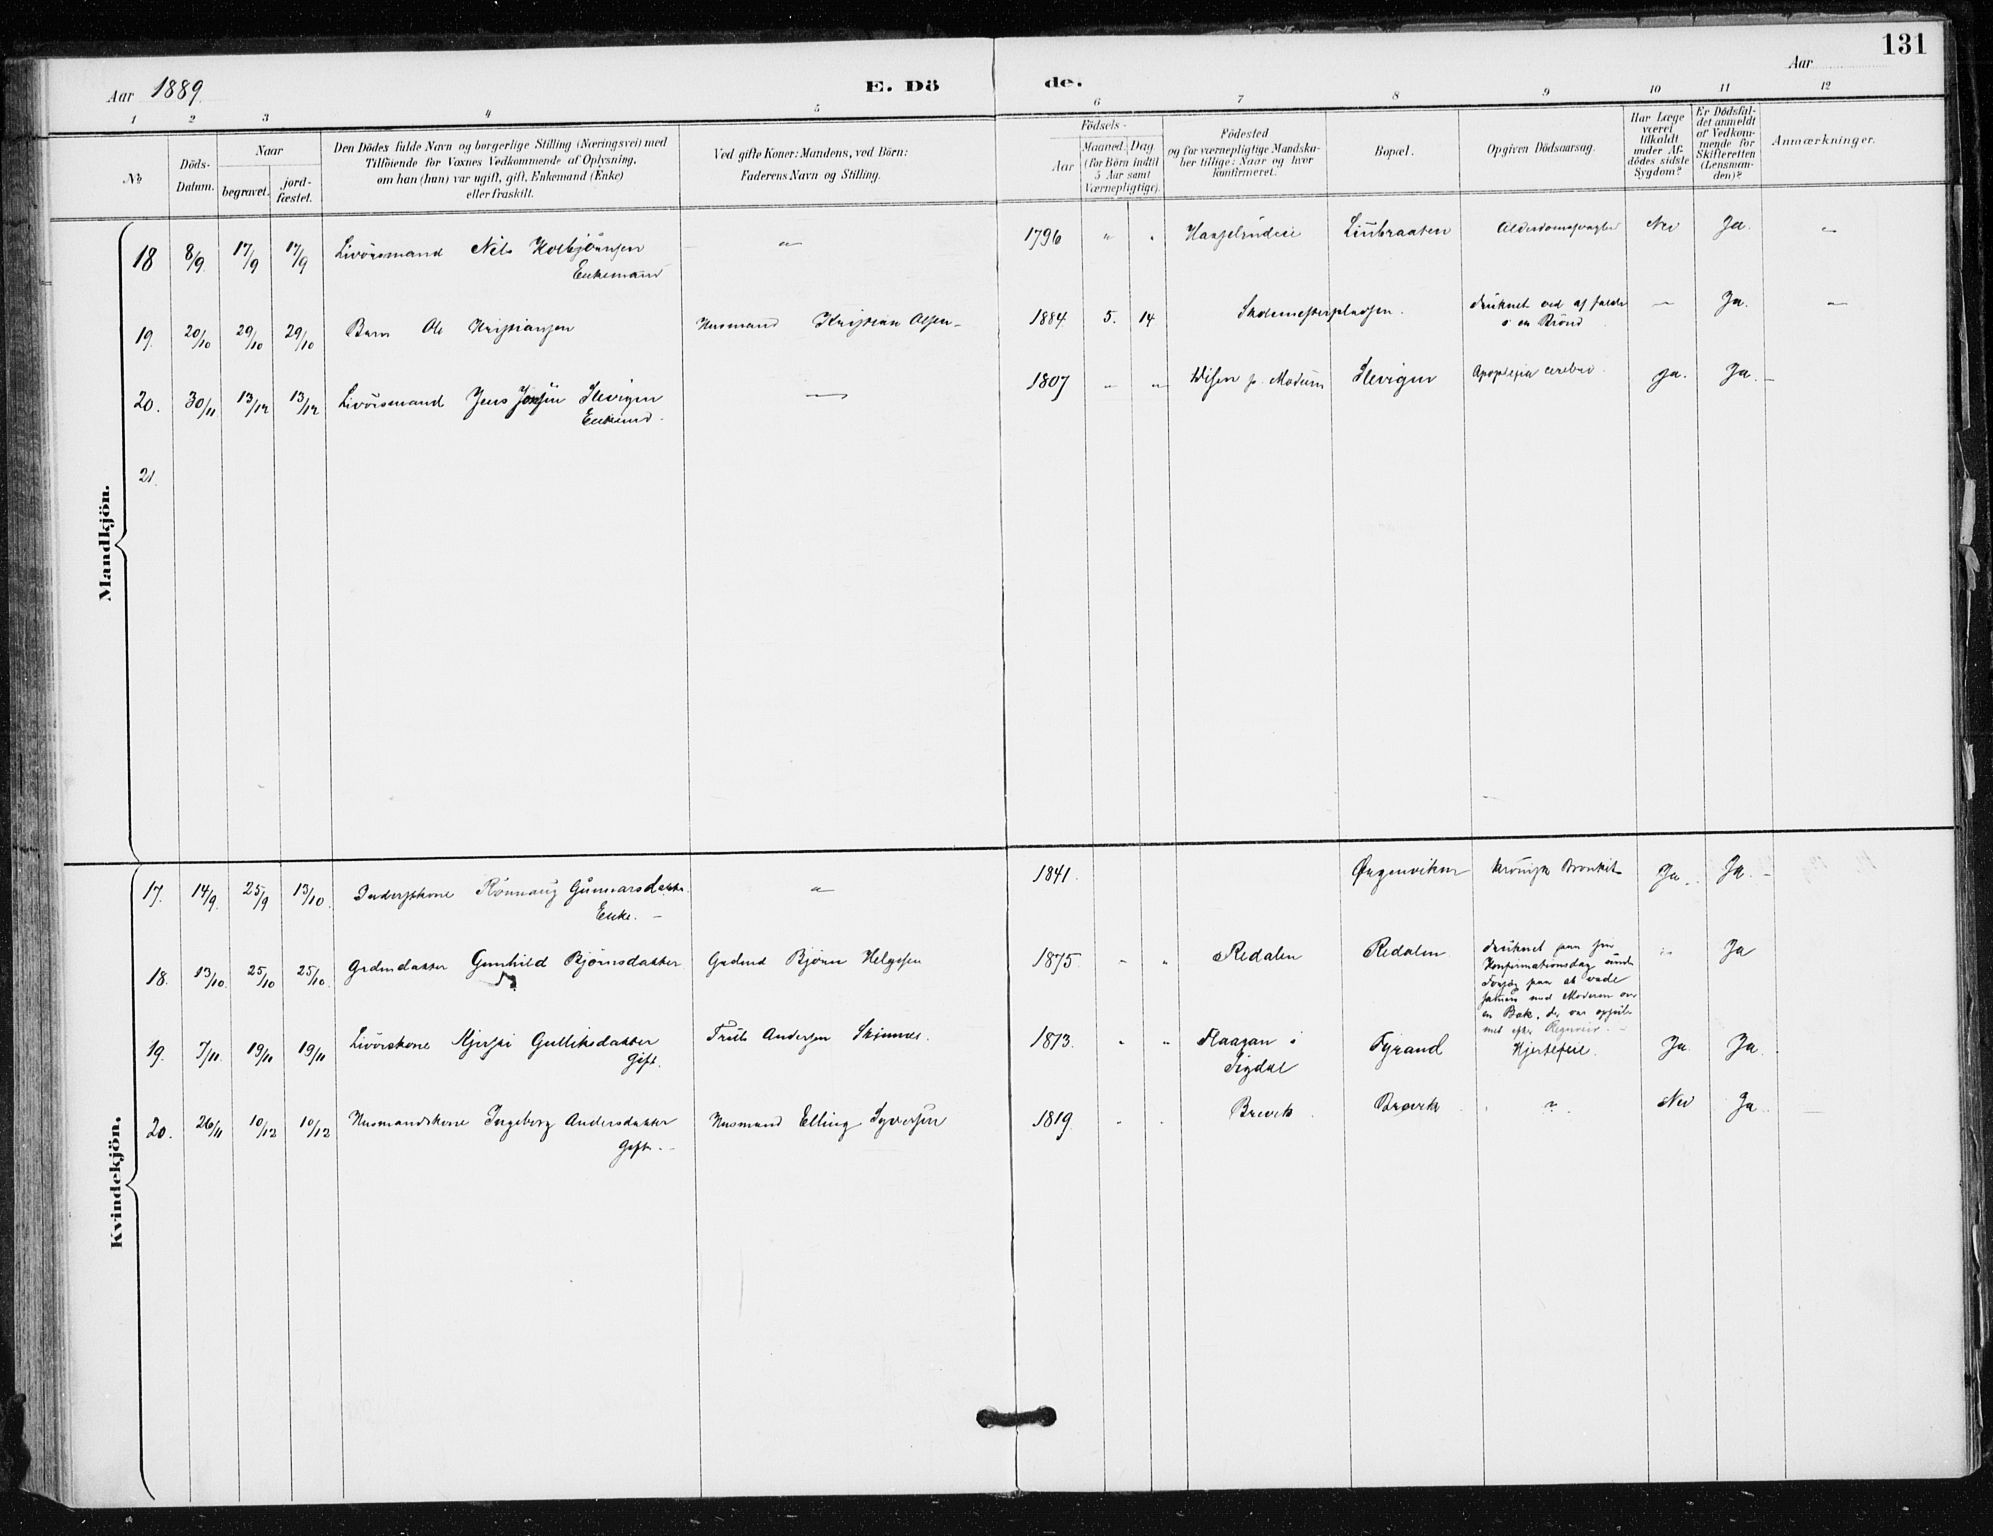 131
Aar 1889.
E. Dö de.
Aar
1 2 3 4 5 6 7 8 9 10 11 12
№
Döds-Datum.
Naar
begravet.
jord-fæstet.
Den Dödes fulde Navn og borgerlige Stilling (Næringsvei) med
Tilföiende for Voxnes Vedkommende af Oplysning,
om han (hun) var ugift, gift, Enkemand (Enke)
eller fraskilt.
Ved gifte Koner: Mandens, ved Börn:
Faderens Navn og Stilling.
Födsels-
Aar
Maaned. Dag.
(for Börn indtil
5 Aar samt
Værnepligtige).
Födested
og for værnepligtige Mandska-
ber tillige: Naar og hvor
konfirmeret.
Bopæl.
Opgiven Dödsaarsag.
Har Læge
været
tilkaldt
under Af-
dödes sidste
Sygdom?
Er Dödsfal-
det anmeldt
af Vedkom-
mende for
Skifteretten
(Lensman-
den)?
Anmærkninger.
Mandkjön.
18 8/9. 17/9 17/9 Livörsmand Nils Kolbjörnsen 1796 Nei Ja.
Enkemand
19. 20/10 29/10 29/10 Barn Ole Kristiansen Husmand Kristian Olsen 1884 5. 14 Skolemesterpladsen. druknet ved at falde — Ja.
i en Brönd
20. 30/11 13/12 13/12 Livörsmand Jens Jonsen Slevigen — 1807 p. Modum Slevigen Apoplexia cerebri. Ja. Ja.
Enkemd.
21.
Kvindekjön.
17. 14/9. 25/9 13/10. Inderstkone Rönnaug Gunnarsdatter 1841. kronisk Bronkit Ja. Ja.
Enke.
18. 13/10. 25/10 25/10. Grdmdatter Gunhild Björnsdatter Grdmd Björn Helgesen 1875. Redalen Redalen druknet paa sin Ja
Konfirmationsdag under
Forsøg paa at vade
sammen med Moderen over
en Bæk, der var opsvul-
met efter Regnveir.
19. 7/11. 19/11 19/11 Livörskone Gulliksdatter Truls Andersen 1813. Flaagan i Hjertefeil. Ja. Ja.
Gift. Sigdal
20. 26/11 10/12 10/12 Husmandskone Ingeborg Andersdatter Husmand Elling Syversen 1819. Brevik Brevik ? Nei Ja
Gift.